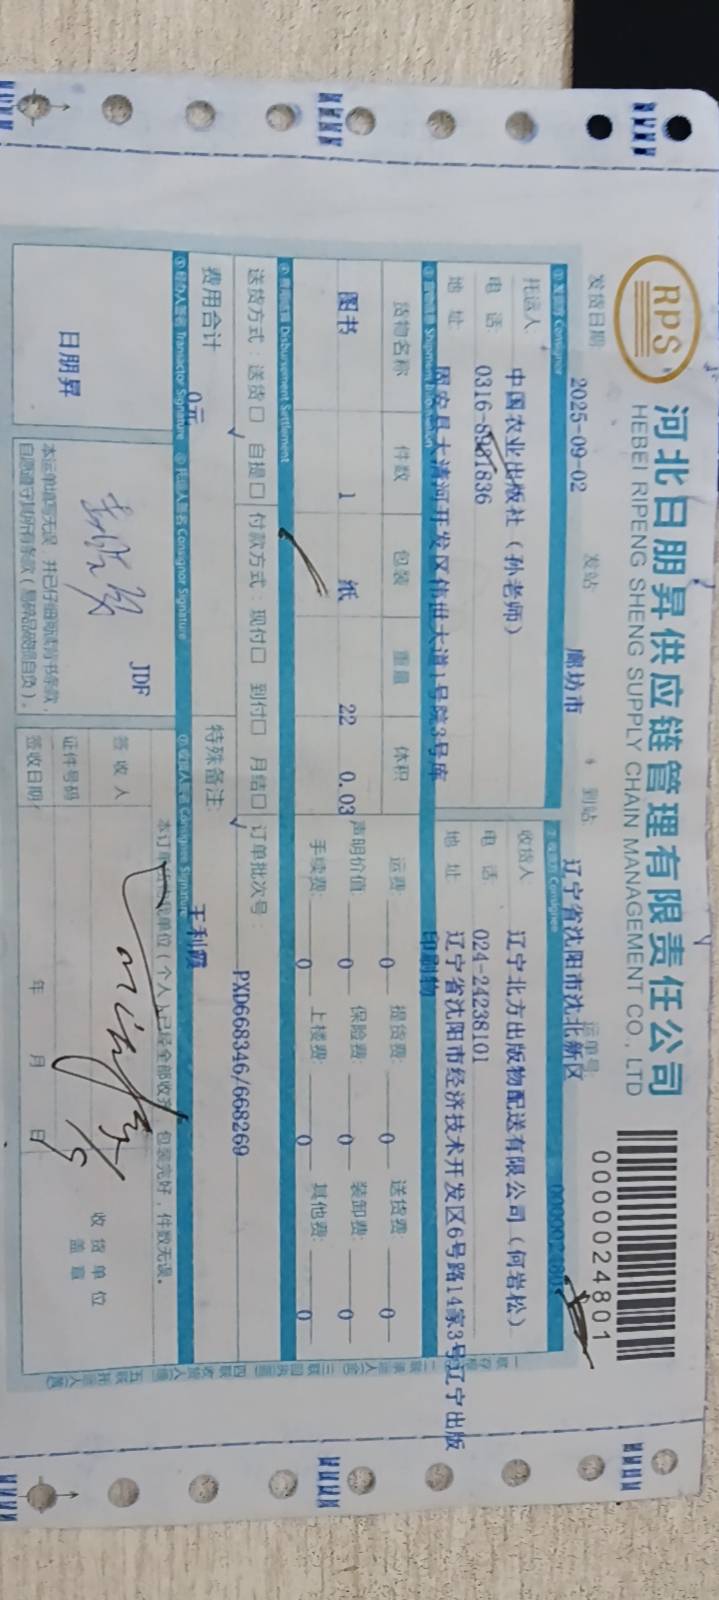 RPS
河北日朋昇供应链管理有限责任公司
HEBEI RIPENG SHENG SUPPLY CHAIN MANAGEMENT CO., LTD
0000024801
发货日期: 2025-09-02 发站 廊坊市 到站: 辽宁省沈阳市沈北新区 运单号:
①发货方 Consignor ②收货方 Consignee
托运人: 中国农业出版社(孙老师) 收货人: 辽宁北方出版物配送有限公司(何岩松)
电 话: 电 话: 024-24238101
地 址: 固安县大清河开发区伟世大道1号院3号库 地 址: 辽宁省沈阳市经济技术开发区6号路14家3号辽宁出版
印刷物
货物名称 件数 包装 重量 体积 运费: 0 提货费: 0 送货费: 0
图书 1 纸 22 0.03 声明价值: 0 保险费: 0 装卸费: 0
手续费: 0 上楼费: 0 其他费: 0
④费用结算 Disbursement Settlement
送货方式: 送货□ 自提□ 付款方式: 现付□ 到付□ 月结□ 订单批次号: PXD668346/668269
费用合计 0元 特殊备注: 王利霞
⑤经办人签名 Transactor Signature ⑥托运人签名 Consignor Signature ⑦收货人签名 Consignee Signature
日朋昇
JDF
本运单填写无误,并已仔细阅读背书条款,
自愿遵守其所有条款(易碎品破损自负)。
包装完好,件数无误。
签 收 人
证件号码
签收日期: 年 月 日
收 货 单 位
盖 章